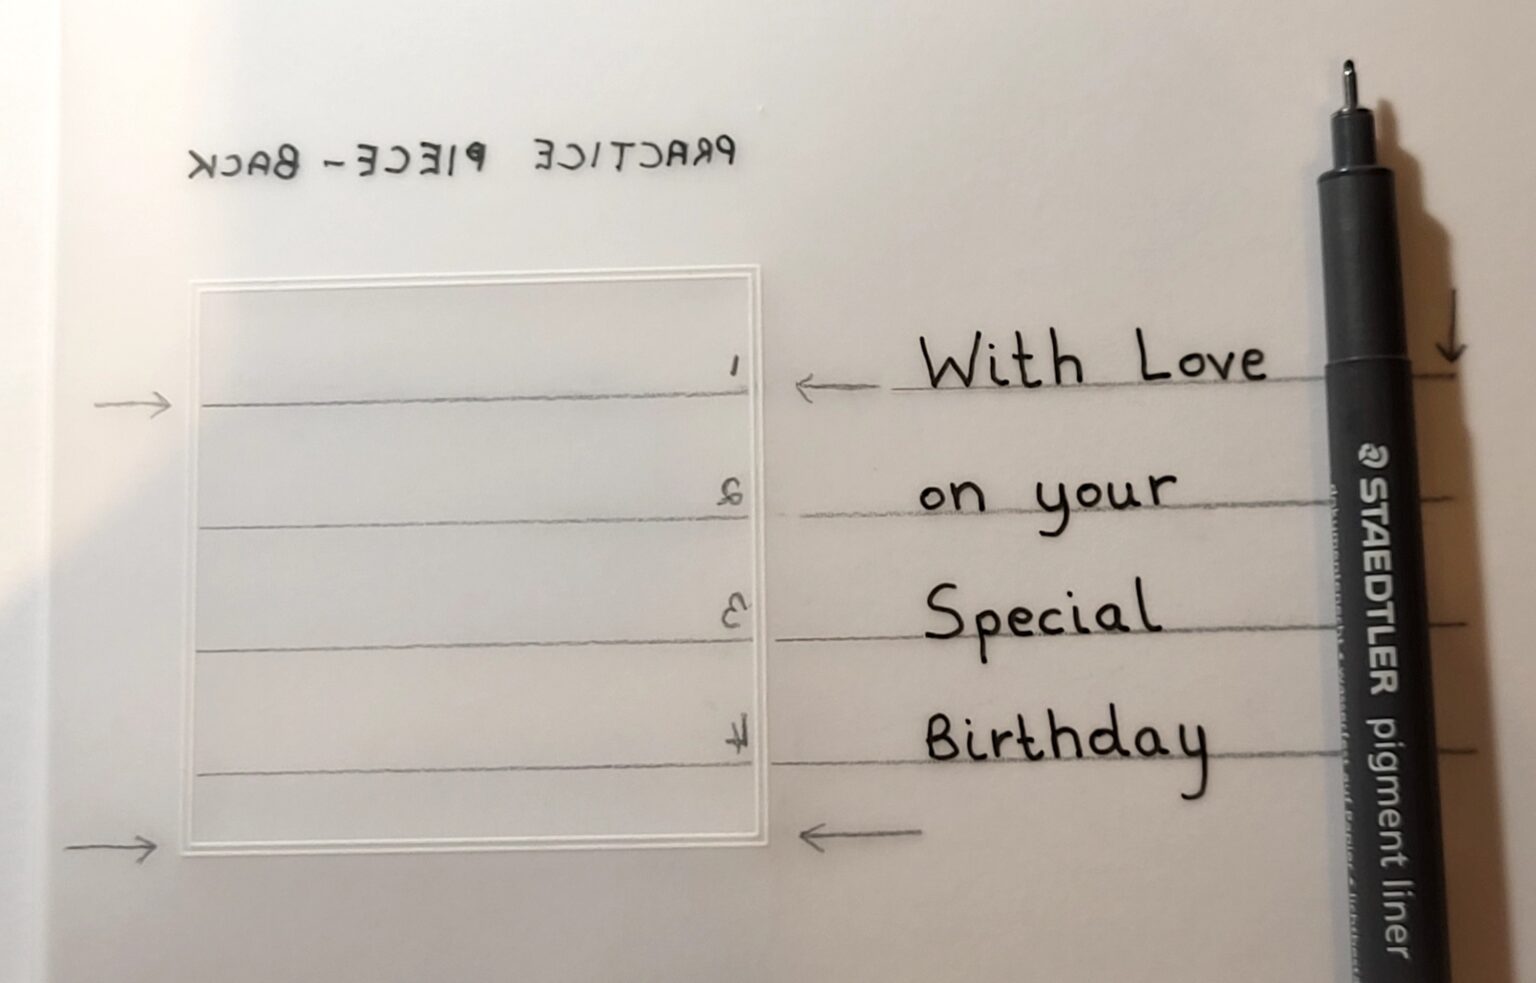 PRACTICE PIECE - BACK
1
2
3
4
With Love
on your
Special
Birthday
STAEDTLER pigment liner